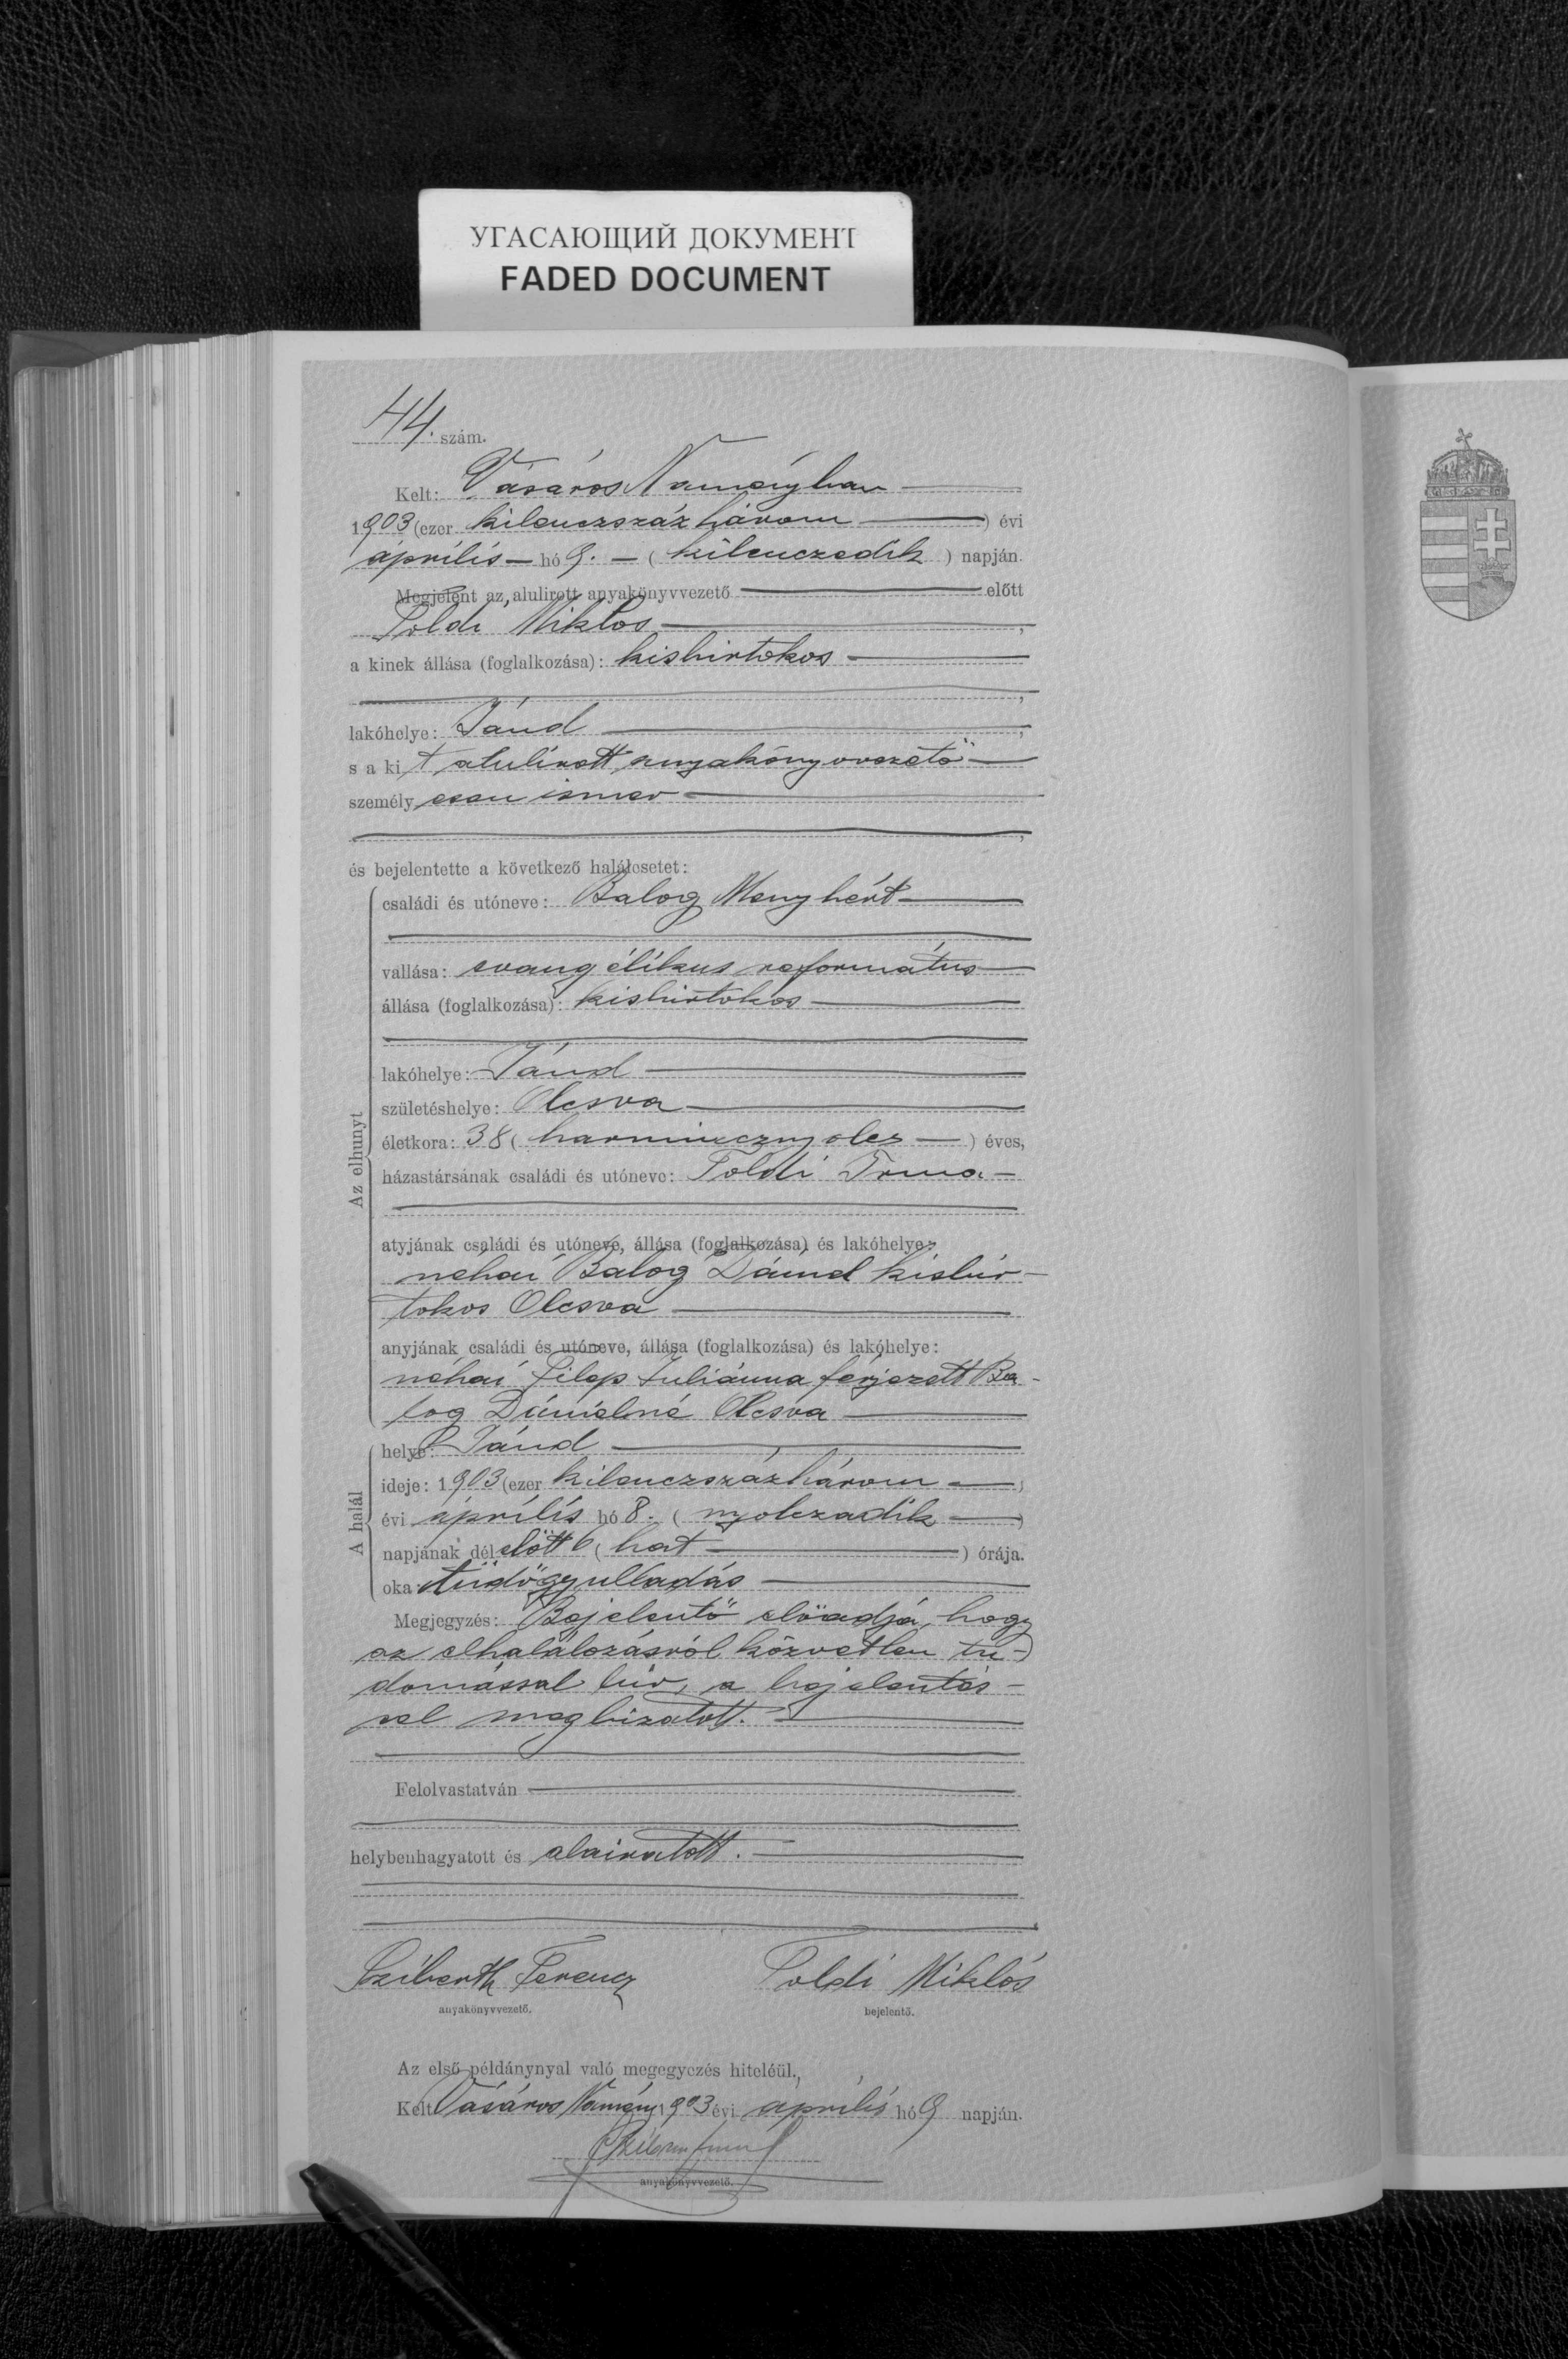 УГАСАЮЩИЙ ДОКУМЕНТ
FADED DOCUMENT
44. szám.
Kelt: Vásáros Naményban
1903 (ezer kilenczszáz három ) évi
április hó 9. ( kilenczedik ) napján.
Megjelent az alulirott anyakönyvvezető előtt
Toldi Miklós
a kinek állása (foglalkozása): kisbirtokos
lakóhelye: Jánd
s a kit alulírott anyakönyvvezető
személyesen ismer
és bejelentette a következő halálesetet:
Az elhunyt
családi és utóneve: Balog Menyhért
vallása: evangélikus református
állása (foglalkozása): kisbirtokos
lakóhelye: Jánd
születéshelye: Olcsva
életkora: 38 ( harmincznyolcz ) éves,
házastársának családi és utóneve: Toldi Irma
atyjának családi és utóneve, állása (foglalkozása) és lakóhelye:
néhai Balog Dániel kisbir-
tokos Olcsva
anyjának családi és utóneve, állása (foglalkozása) és lakóhelye:
néhai Filep Juliánna férjezett Ba-
log Dánielné Olcsva
A halál
helye: Jánd
ideje: 1903 (ezer kilenczszázhárom )
évi április hó 8. ( nyolczadik )
napjának délelőtt 6 ( hat ) órája.
oka: tüdőgyulladás
Megjegyzés: Bejelentő előadja, hogy
az elhalálozásról közvetlen tu-
domással bir, a bejelentés-
sel megbizatott.
Felolvastatván
helybenhagyatott és aláiratott.
Ferencz Toldi Miklós
anyakönyvvezető. bejelentő.
Az első példánynyal való megegyezés hiteléül.
Kelt Vásáros Namény 1903 évi április hó 9 napján.
anyakönyvvezető.